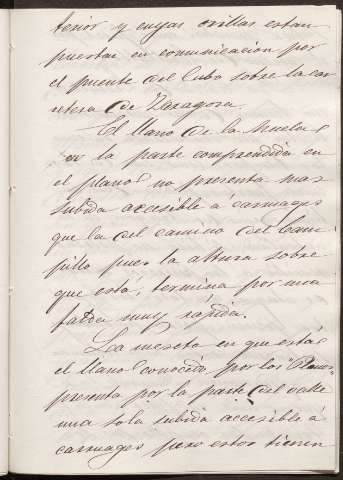 terior y cuyas orillas estan
puestas en comunicacion por
el puente del Cubo sobre la car
retera de Zaragoza.
El llano de la Muela
en la parte comprendida en
el plano no presenta mas
subida accesible á carruages
que la del camino del Cam
pillo pues la altura sobre
que está, termina por una
falda muy rápida.
La meseta en que está
el llano conocido por los "Planos"
presenta por la parte del valle
una sola subida accesible á
carruages pero estos tienen